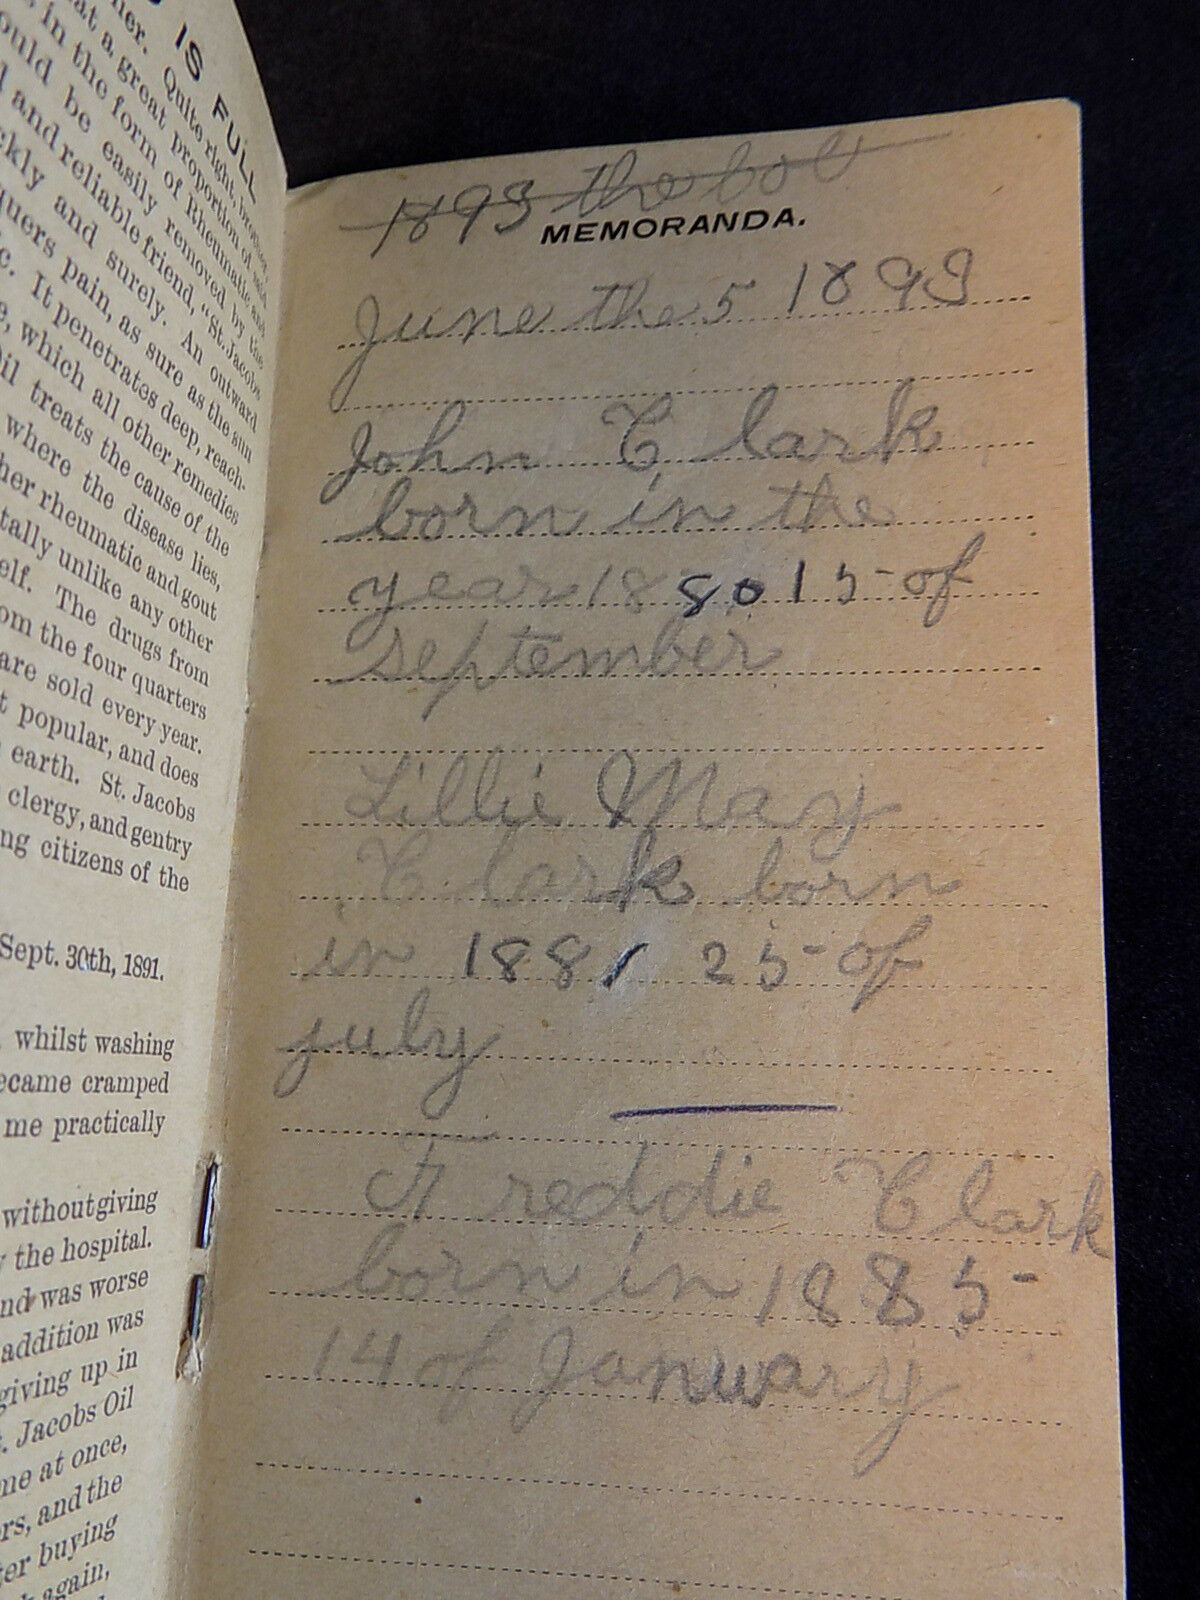 IS FULL
ner. Quite right, brother,
at a great proportion of said
in the form of Rheumatic and
ould be easily removed by the
and reliable friend, "St. Jacobs
ckly and surely. An outward
quers pain, as sure as the sun
c. It penetrates deep, reach-
e, which all other remedies
Oil treats the cause of the
where the disease lies,
her rheumatic and gout
tally unlike any other
elf. The drugs from
om the four quarters
are sold every year.
t popular, and does
earth. St. Jacobs
clergy, and gentry
ng citizens of the
Sept. 30th, 1891.
whilst washing
ecame cramped
me practically
without giving
y the hospital.
nd was worse
addition was
giving up in
t. Jacobs Oil
me at once,
rs, and the
ter buying
again,
1893 the
MEMORANDA.
June the 5 1893
John Clark
born in the
year 1880 15 of
september
Lillie May
Clark born
in 1881 25 of
july
Freddie Clark
born in 1885
14 of January